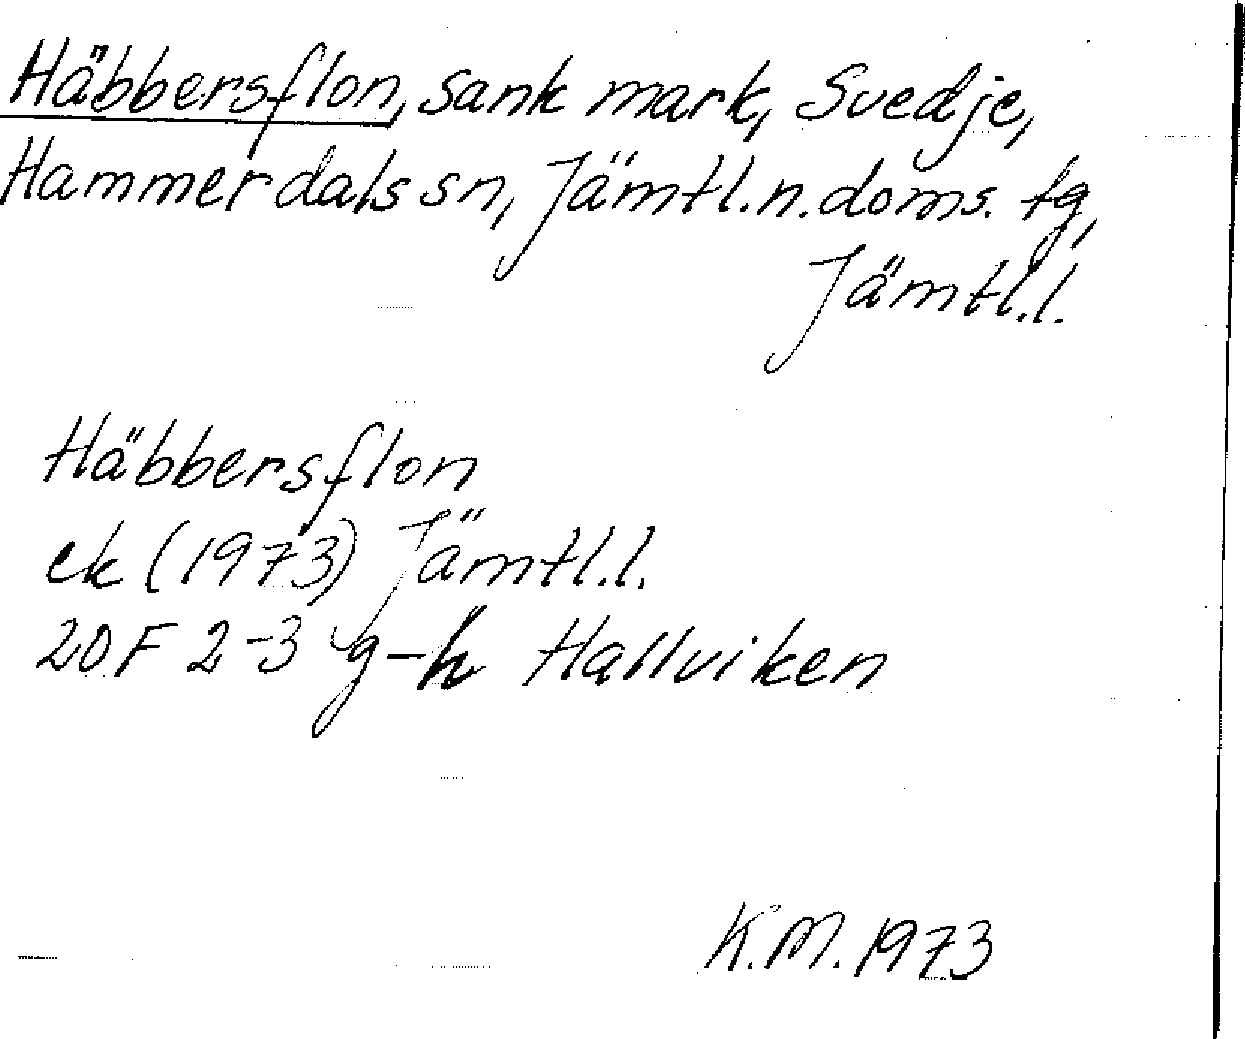 Häbbersflon, sank mark, Svedje,
Hammerdals sn, Jämtl.n.doms. tg,
Jämtl.l.
Häbbersflon
ek (1973) Jämtl.l.
20F 2-3 g-h Hallviken
K.M. 1973